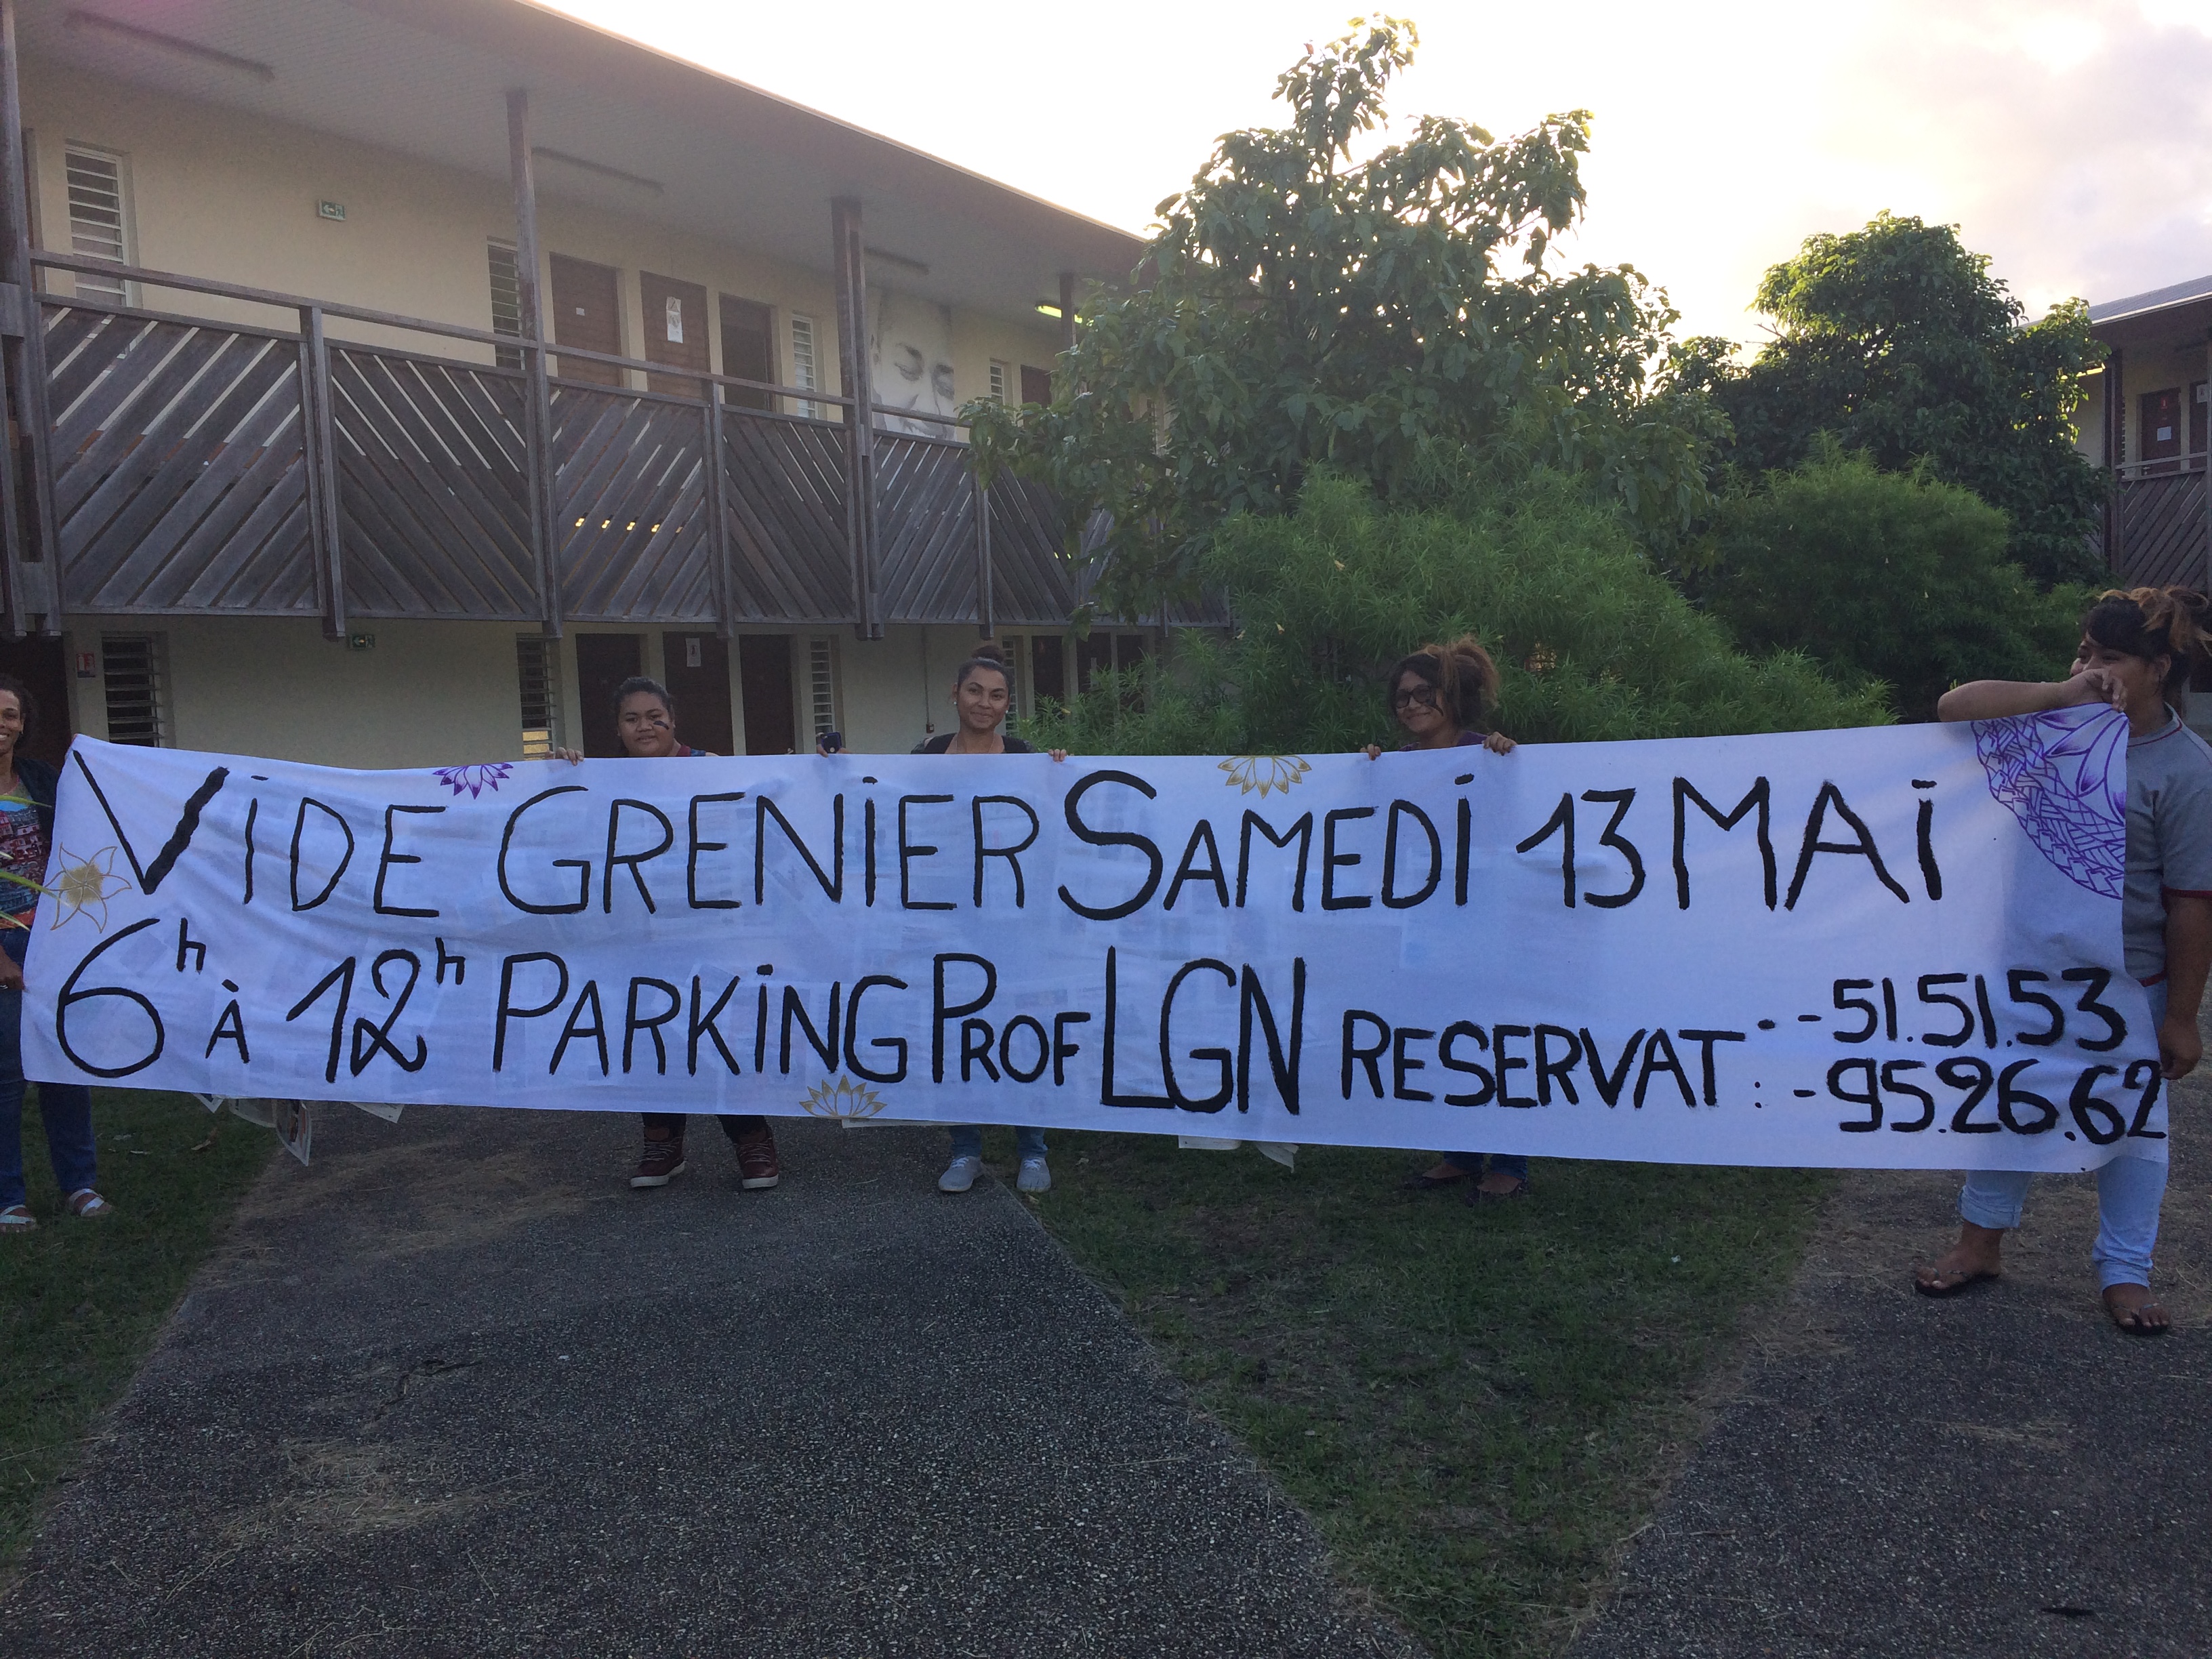 VIDE GRENIER SAMEDI 13 MAI
6h À 12h PARKING PROF LGN RESERVAT° : -51.51.53
-95.26.62